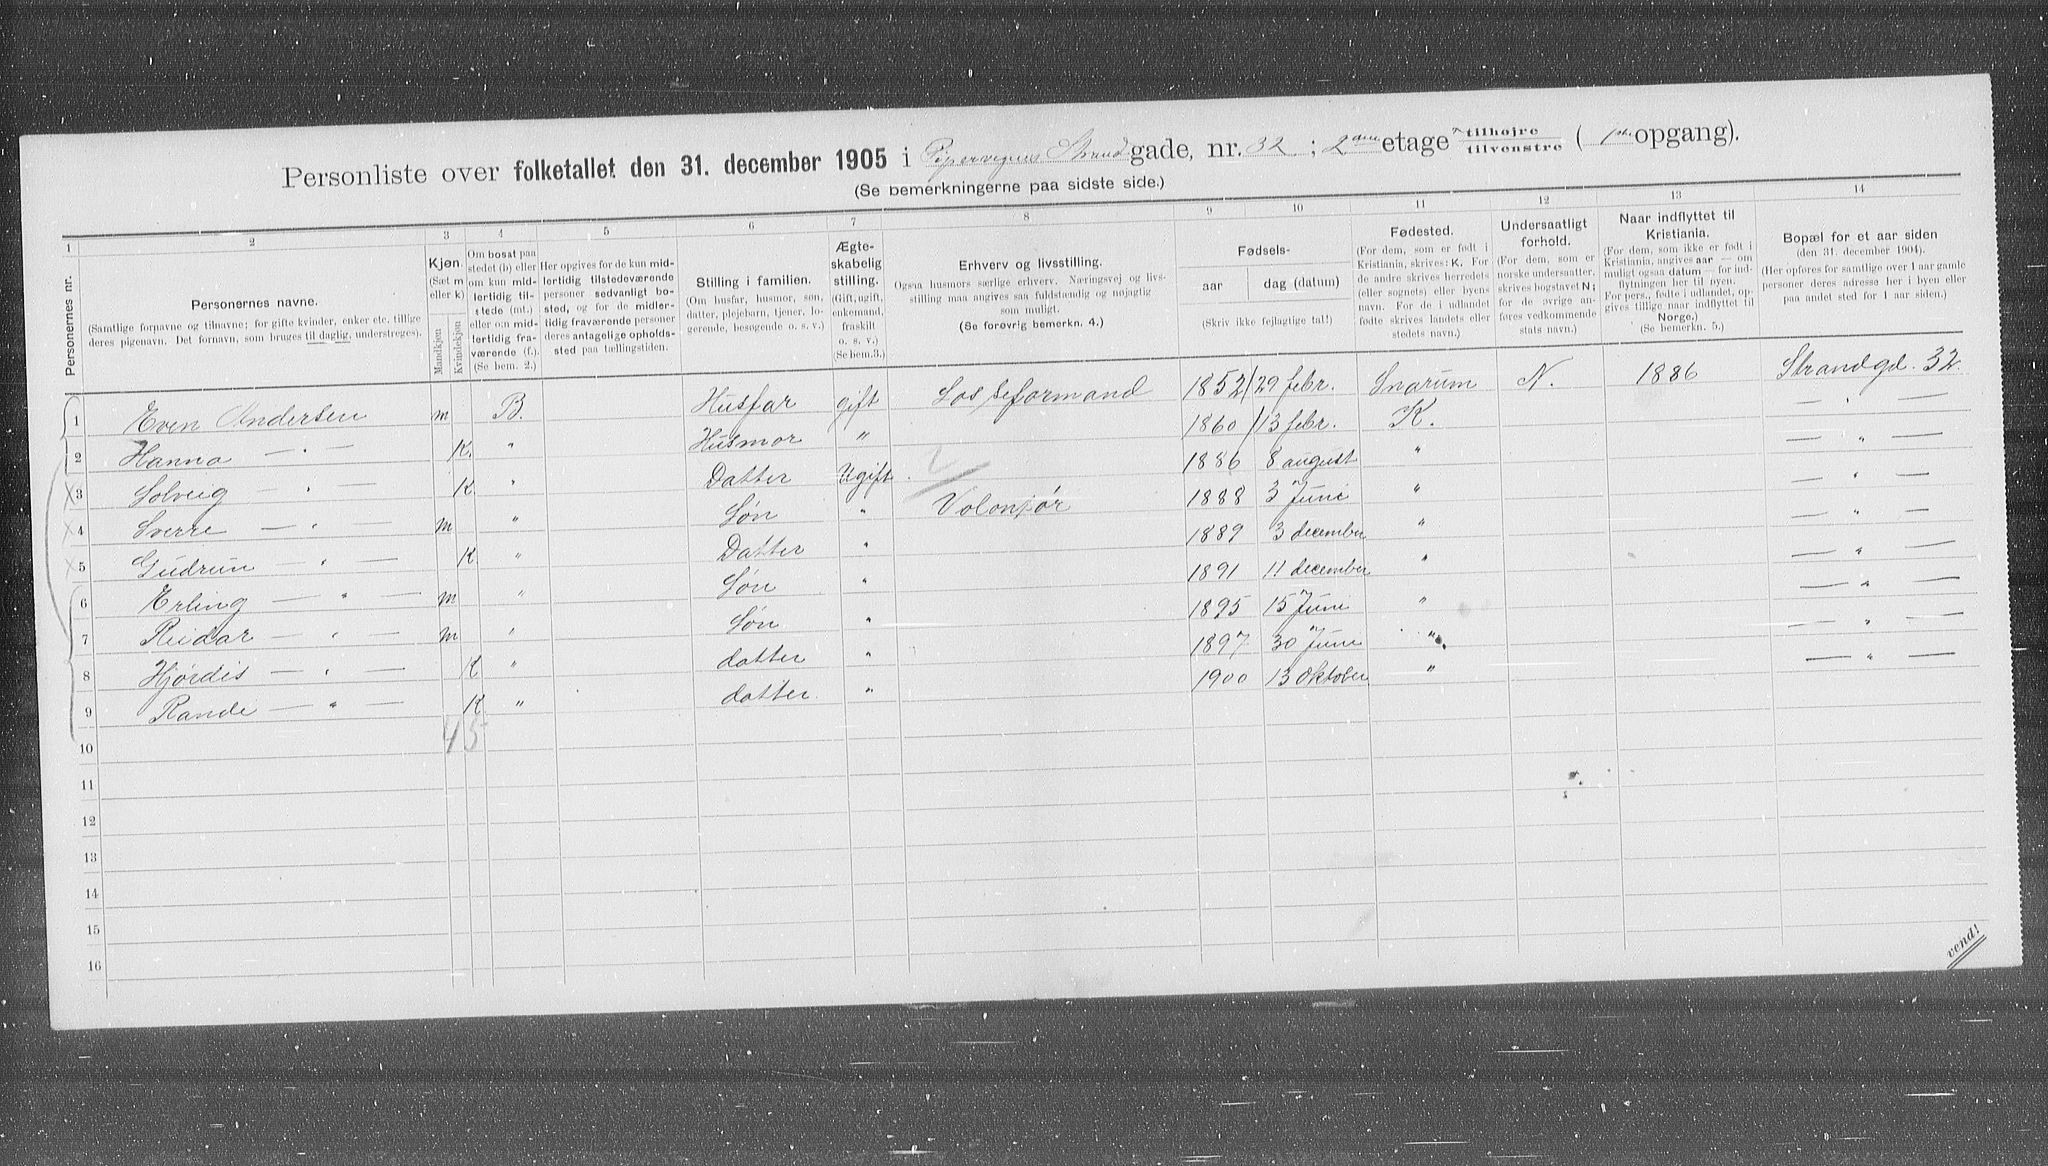 Personliste over folketallet den 31. december 1905 i Pipervigens Strandgade, nr. 32; 2den etage tilhøjre tilvenstre (1ste opgang).
(Se bemerkningerne paa sidste side.)
1 2 3 4 5 6 7 8 9 10 11 12 13 14
Personernes nr.
Personernes navne.
(Samtlige fornavne og tilnavne; for gifte kvinder, enker etc. tillige deres pigenavn. Det fornavn, som bruges til daglig, understreges).
Kjøn.
(Sæt m eller k)
Mandkjøn
Kvindekjøn
Om bosat paa stedet (b) eller om kun midlertidig tilstede (mt.) eller om midlertidig fraværende (f.). (Se bem. 2.)
Her opgives for de kun midlertidig tilstedeværende personer sedvanligt bosted, og for de midlertidig fraværende personer deres antagelige opholdssted paa tællingstiden.
Stilling i familien.
(Om husfar, husmor, søn, datter, plejebarn, tjener, logerende, besøgende o. s. v.)
Ægteskabelig stilling.
(Gift, ugift, enkemand, fraskilt o. s. v.) (Se bem.3.)
Erhverv og livsstilling.
Ogsaa husmors særlige erhverv. Næringsvej og livsstilling maa angives saa fuldstændig og nøjagtig som muligt.
(Se forøvrig bemerkn. 4.)
Fødsels-
aar
dag (datum)
(Skriv ikke fejlagtige tal!)
Fødested.
(For dem, som er født i Kristiania, skrives: K. For de andre skrives herredets (eller sognets) eller byens navn. For de i udlandet fødte skrives landets eller stedets navn.)
Undersaatligt forhold.
(For dem, som er norske undersaatter, skrives bogstavet N; for de øvrige anføres vedkommende stats navn.)
Naar indflyttet til Kristiania.
(For dem, som ikke er født i Kristiania, angives aar — om muligt ogsaa datum — for indflytningen her til byen. For pers., fødte i udlandet, opgives tillige naar indflyttet til Norge.)
(Se bemerkn. 5.)
Bopæl for et aar siden
(den 31. december 1904).
(Her opføres for samtlige over 1 aar gamle personer deres adresse her i byen eller paa andet sted for 1 aar siden.)
1 Even Andersen m B. Husfar gift Losseformand 1852 29 febr. Snarum N. 1886 Strandgd. 32
2 Hanna — " — K. " Husmor " 1860 13 febr. K. — " —
3 Solveig — " — K " Datter Ugift. 1886 8 august " — " —
4 Sverre — " — m " Søn " Volontør 1888 3 Juni " — " —
5 Gudrun — " — K " Datter " 1889 3 december " — " —
6 Erling — " — m " Søn " 1891 11 december " — " —
7 Reidar — " — m " Søn " 1895 15 Juni " — " —
8 Hjørdis — " — K " datter " 1897 30 Juni " — " —
9 Rande — " — K " datter " 1900 13 Oktober " — " —
45
10
11
12
13
14
15
16
vend!